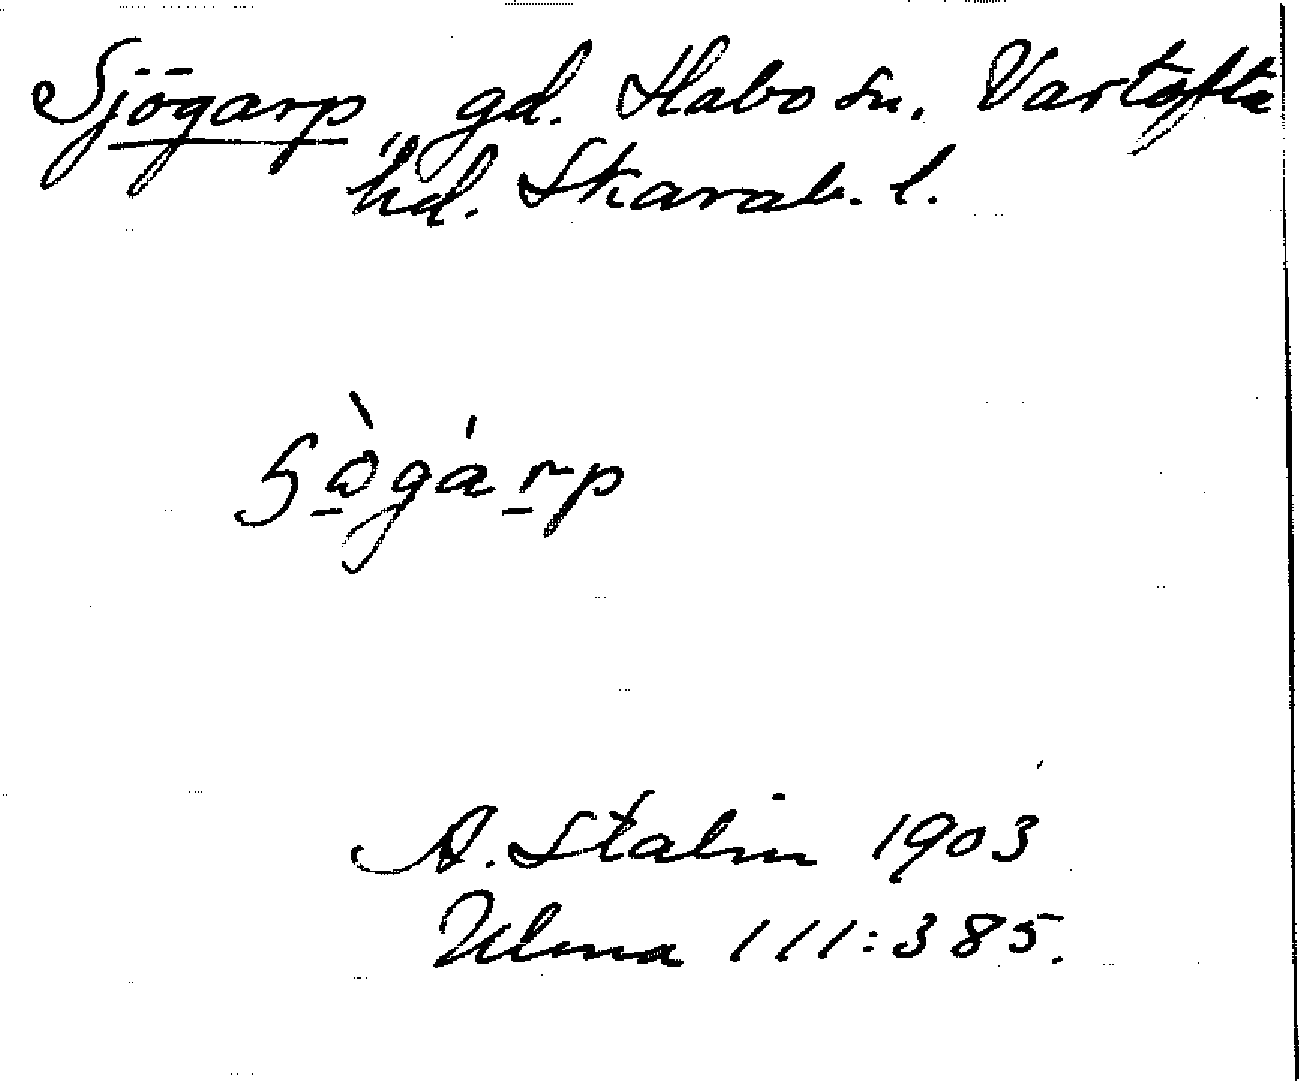 Sjögarp gd. Habo sn. Vartofta
hd. Skarab. l.
A. Stalin 1903
Ulma 111:385.